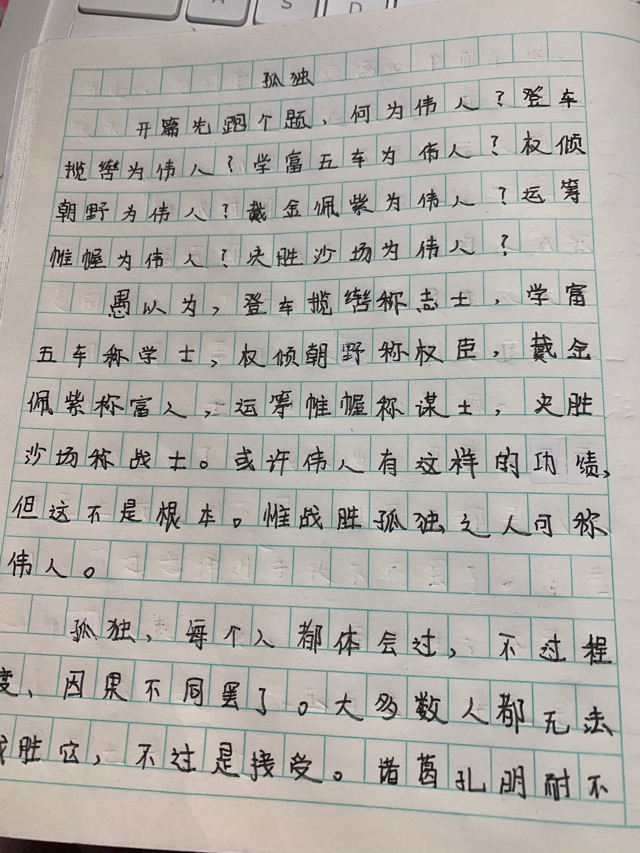 孤独
开篇先跑个题，何为伟人？登车
揽辔为伟人？学富五车为伟人？权倾
朝野为伟人？戴金佩紫为伟人？运筹
帷幄为伟人？决胜沙场为伟人？
愚以为，登车揽辔称志士，学富
五车称学士，权倾朝野称权臣，戴金
佩紫称富人，运筹帷幄称谋士，决胜
沙场称战士。或许伟人有这样的功绩，
但这不是根本。惟战胜孤独之人可称
伟人。
孤独，每个人都体会过，不过程
度、因果不同罢了。大多数人都无法
战胜它，不过是接受。诸葛孔明耐不